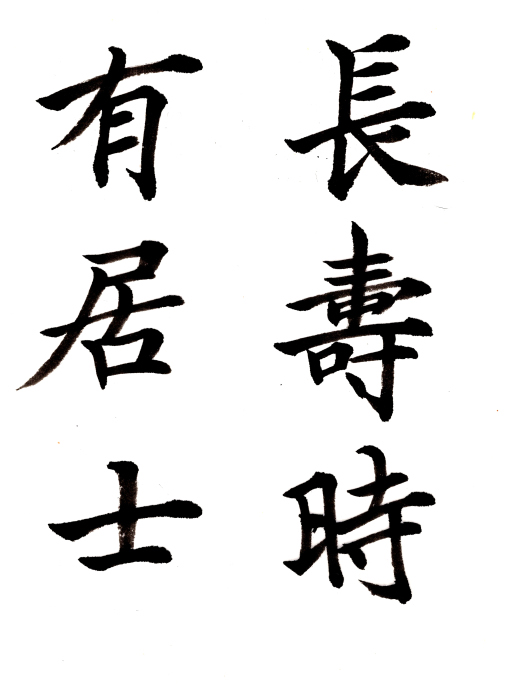 長壽時
有居士